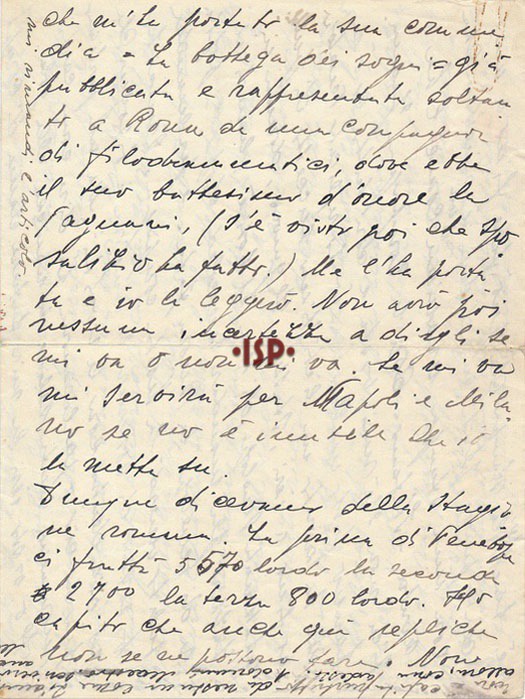 che m'ha portato la sua comme
dia = La bottega dei sogni = già
pubblicata e rappresentata soltan
to a Roma da una compagnia
di filodrammatici, dove ebbe
il suo battesimo d'onore la
Pagnani, (S'è visto poi che spo
salizio ha fatto.) Me l'ha porta
ta e io la leggerò. Non avrò poi
nessuna incertezza a dirgli se
mi va o non mi va. Se mi va
mi servirà per Napoli e Mila-
no se no è inutile che io
la metta su.
Dunque dicevamo della stagio
ne romana. La prima di
ci fruttò 5570 lordo la seconda
2700 la terza 800 lordo. Ho
capito che anche qui repliche
non se ne possono fare. Non
mi rimandi l'articolo
ISP